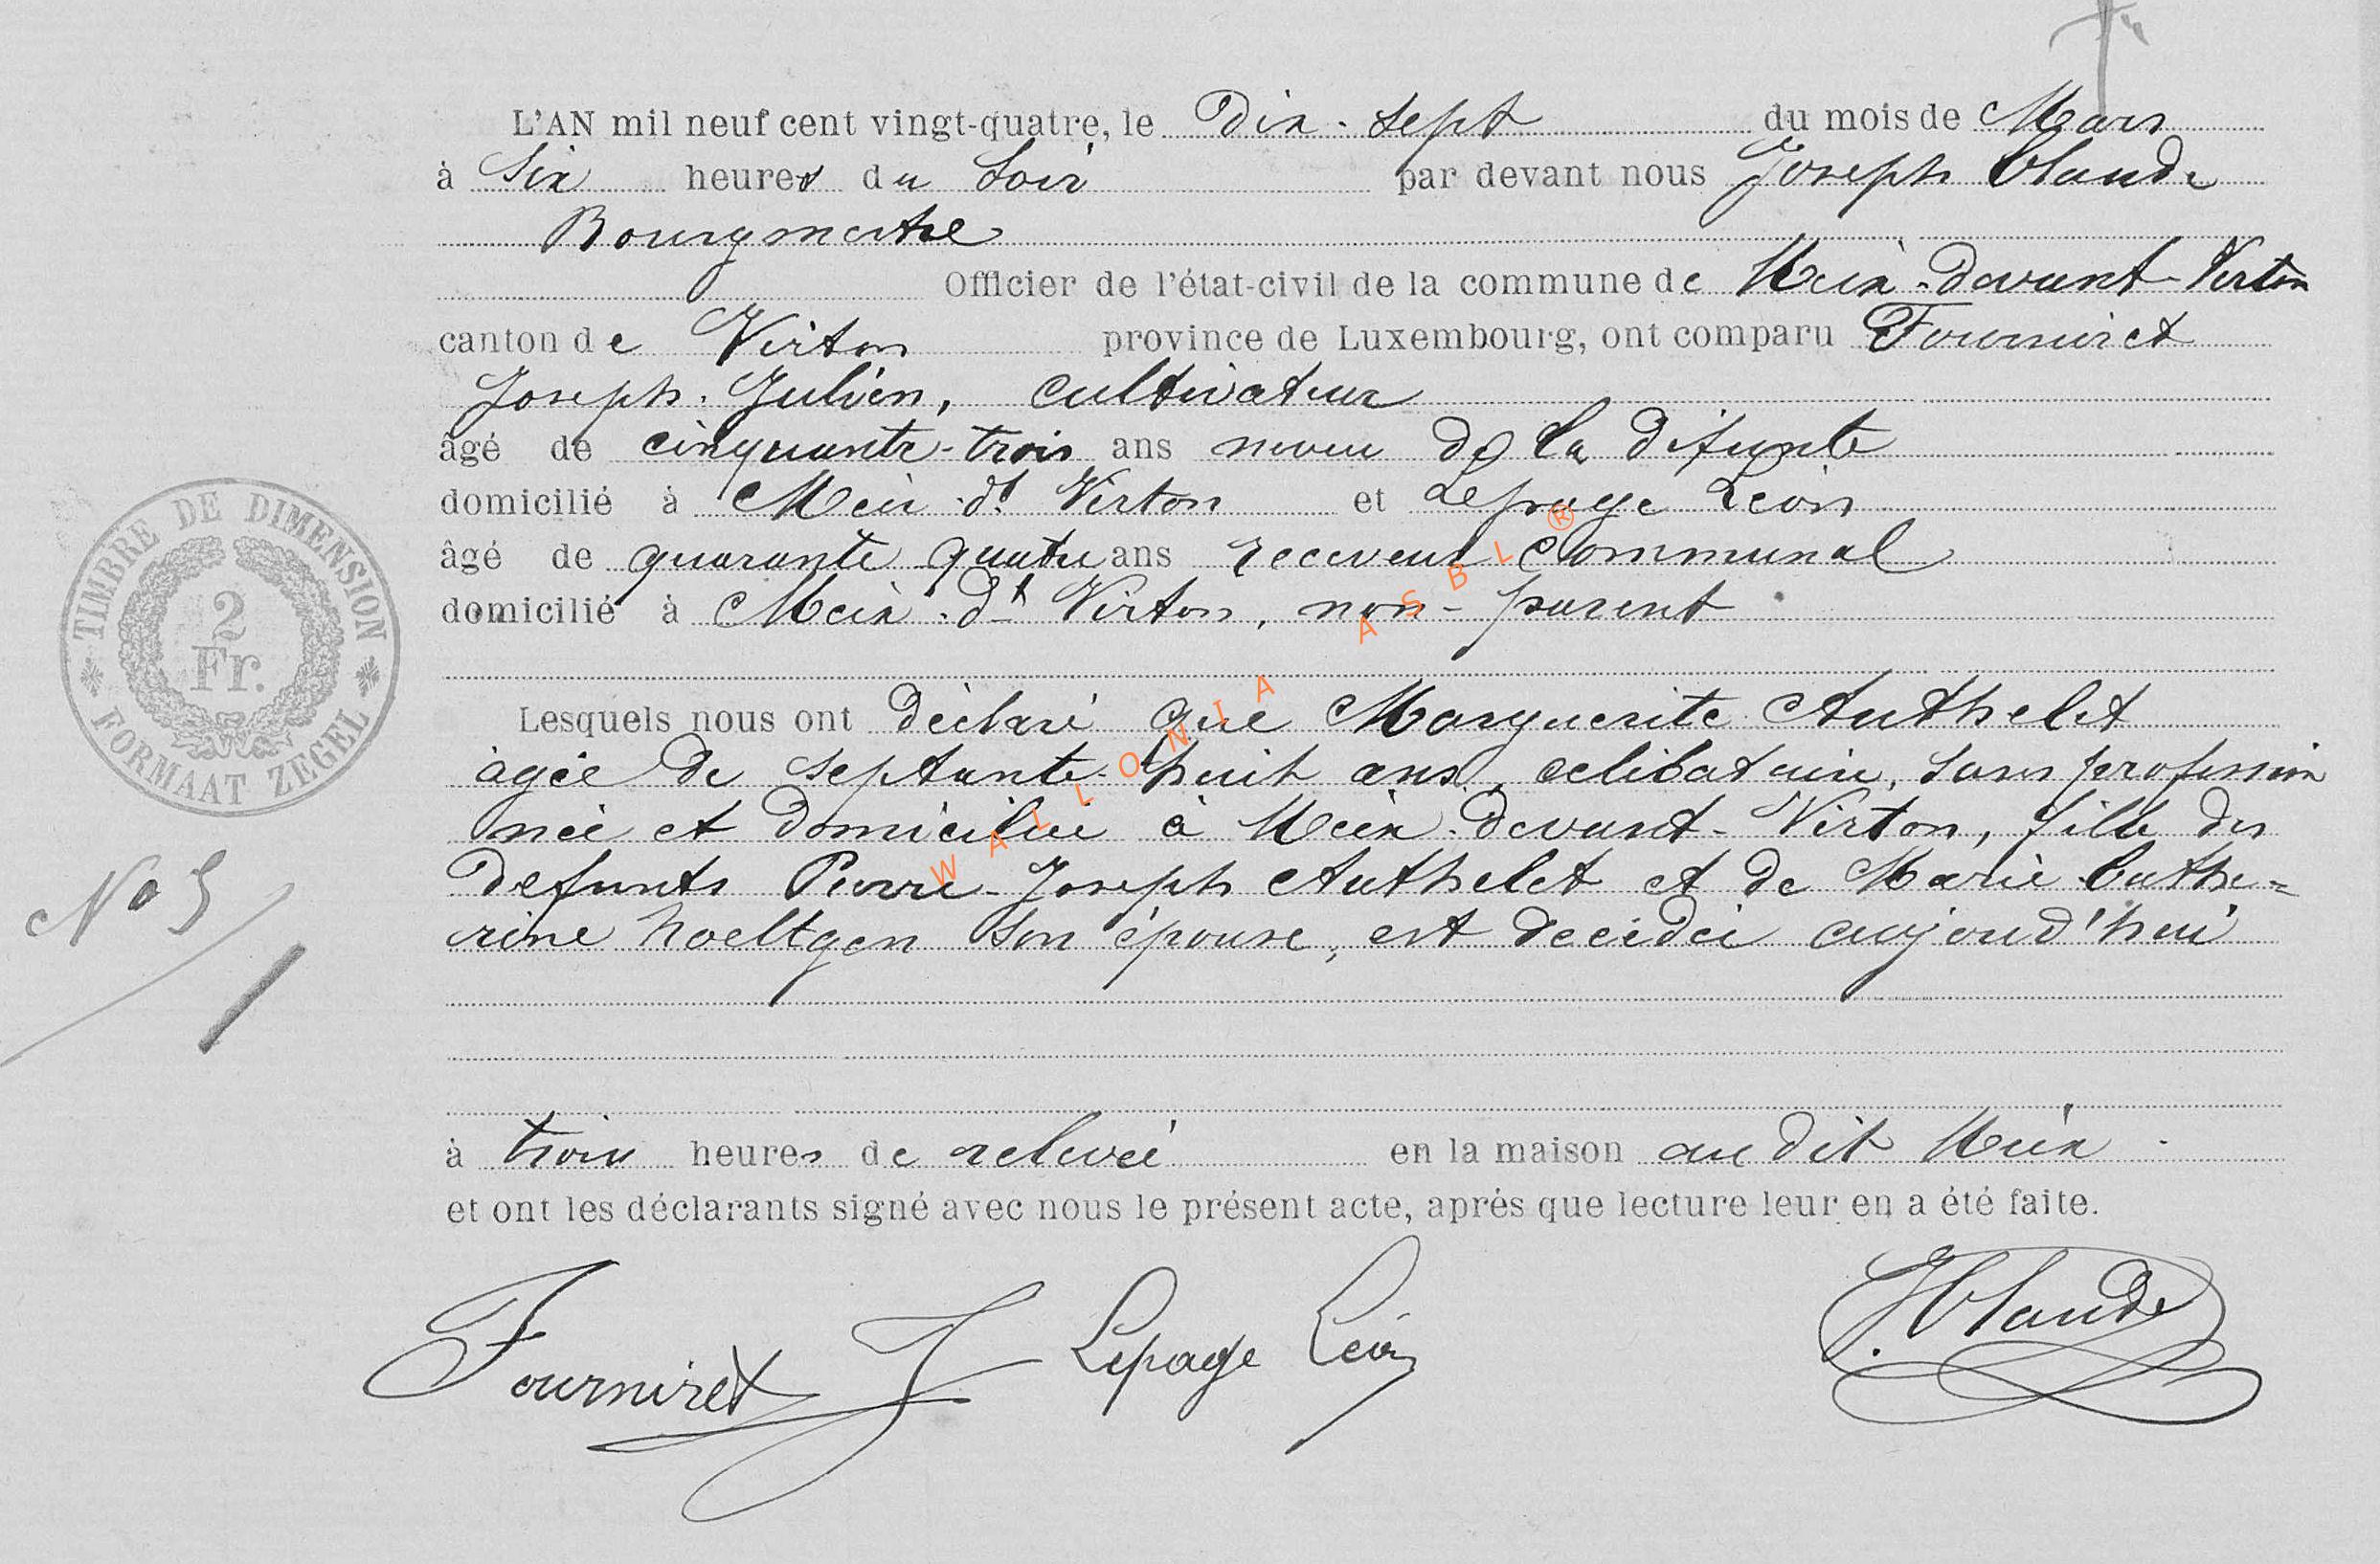 L'AN mil neuf cent vingt-quatre, le Dix-sept du mois de Mars
à Six heures du Soir par devant nous Joseph Claude
Bourgmestre
Officier de l'état-civil de la commune de Meix-devant-Virton
canton de Virton province de Luxembourg, ont comparu Fourniret
Joseph-Julien, cultivateur
âgé de cinquante-trois ans neveu de la défunte
domicilié à Meix-dt Virton et Lepage Léon
âgé de quarante quatre ans receveur communal
domicilié à Meix-dt Virton, non-parent
Lesquels nous ont déclaré que Marguerite Authelet
âgée de septante-huit ans, célibataire, sans profession
née et domiciliée à Meix-devant-Virton, fille des
défunts Pierre-Joseph Authelet et de Marie Cathe=
rine hoeltgen son épouse, est décédée aujourd'hui
à trois heures de relevée en la maison au dit Meix
et ont les déclarants signé avec nous le présent acte, après que lecture leur en a été faite.
Fourniret J Lepage Léon J. Claude
TIMBRE DE DIMENSION
2
Fr.
FORMAAT ZEGEL
No 5
WALLONIA ASBL ®